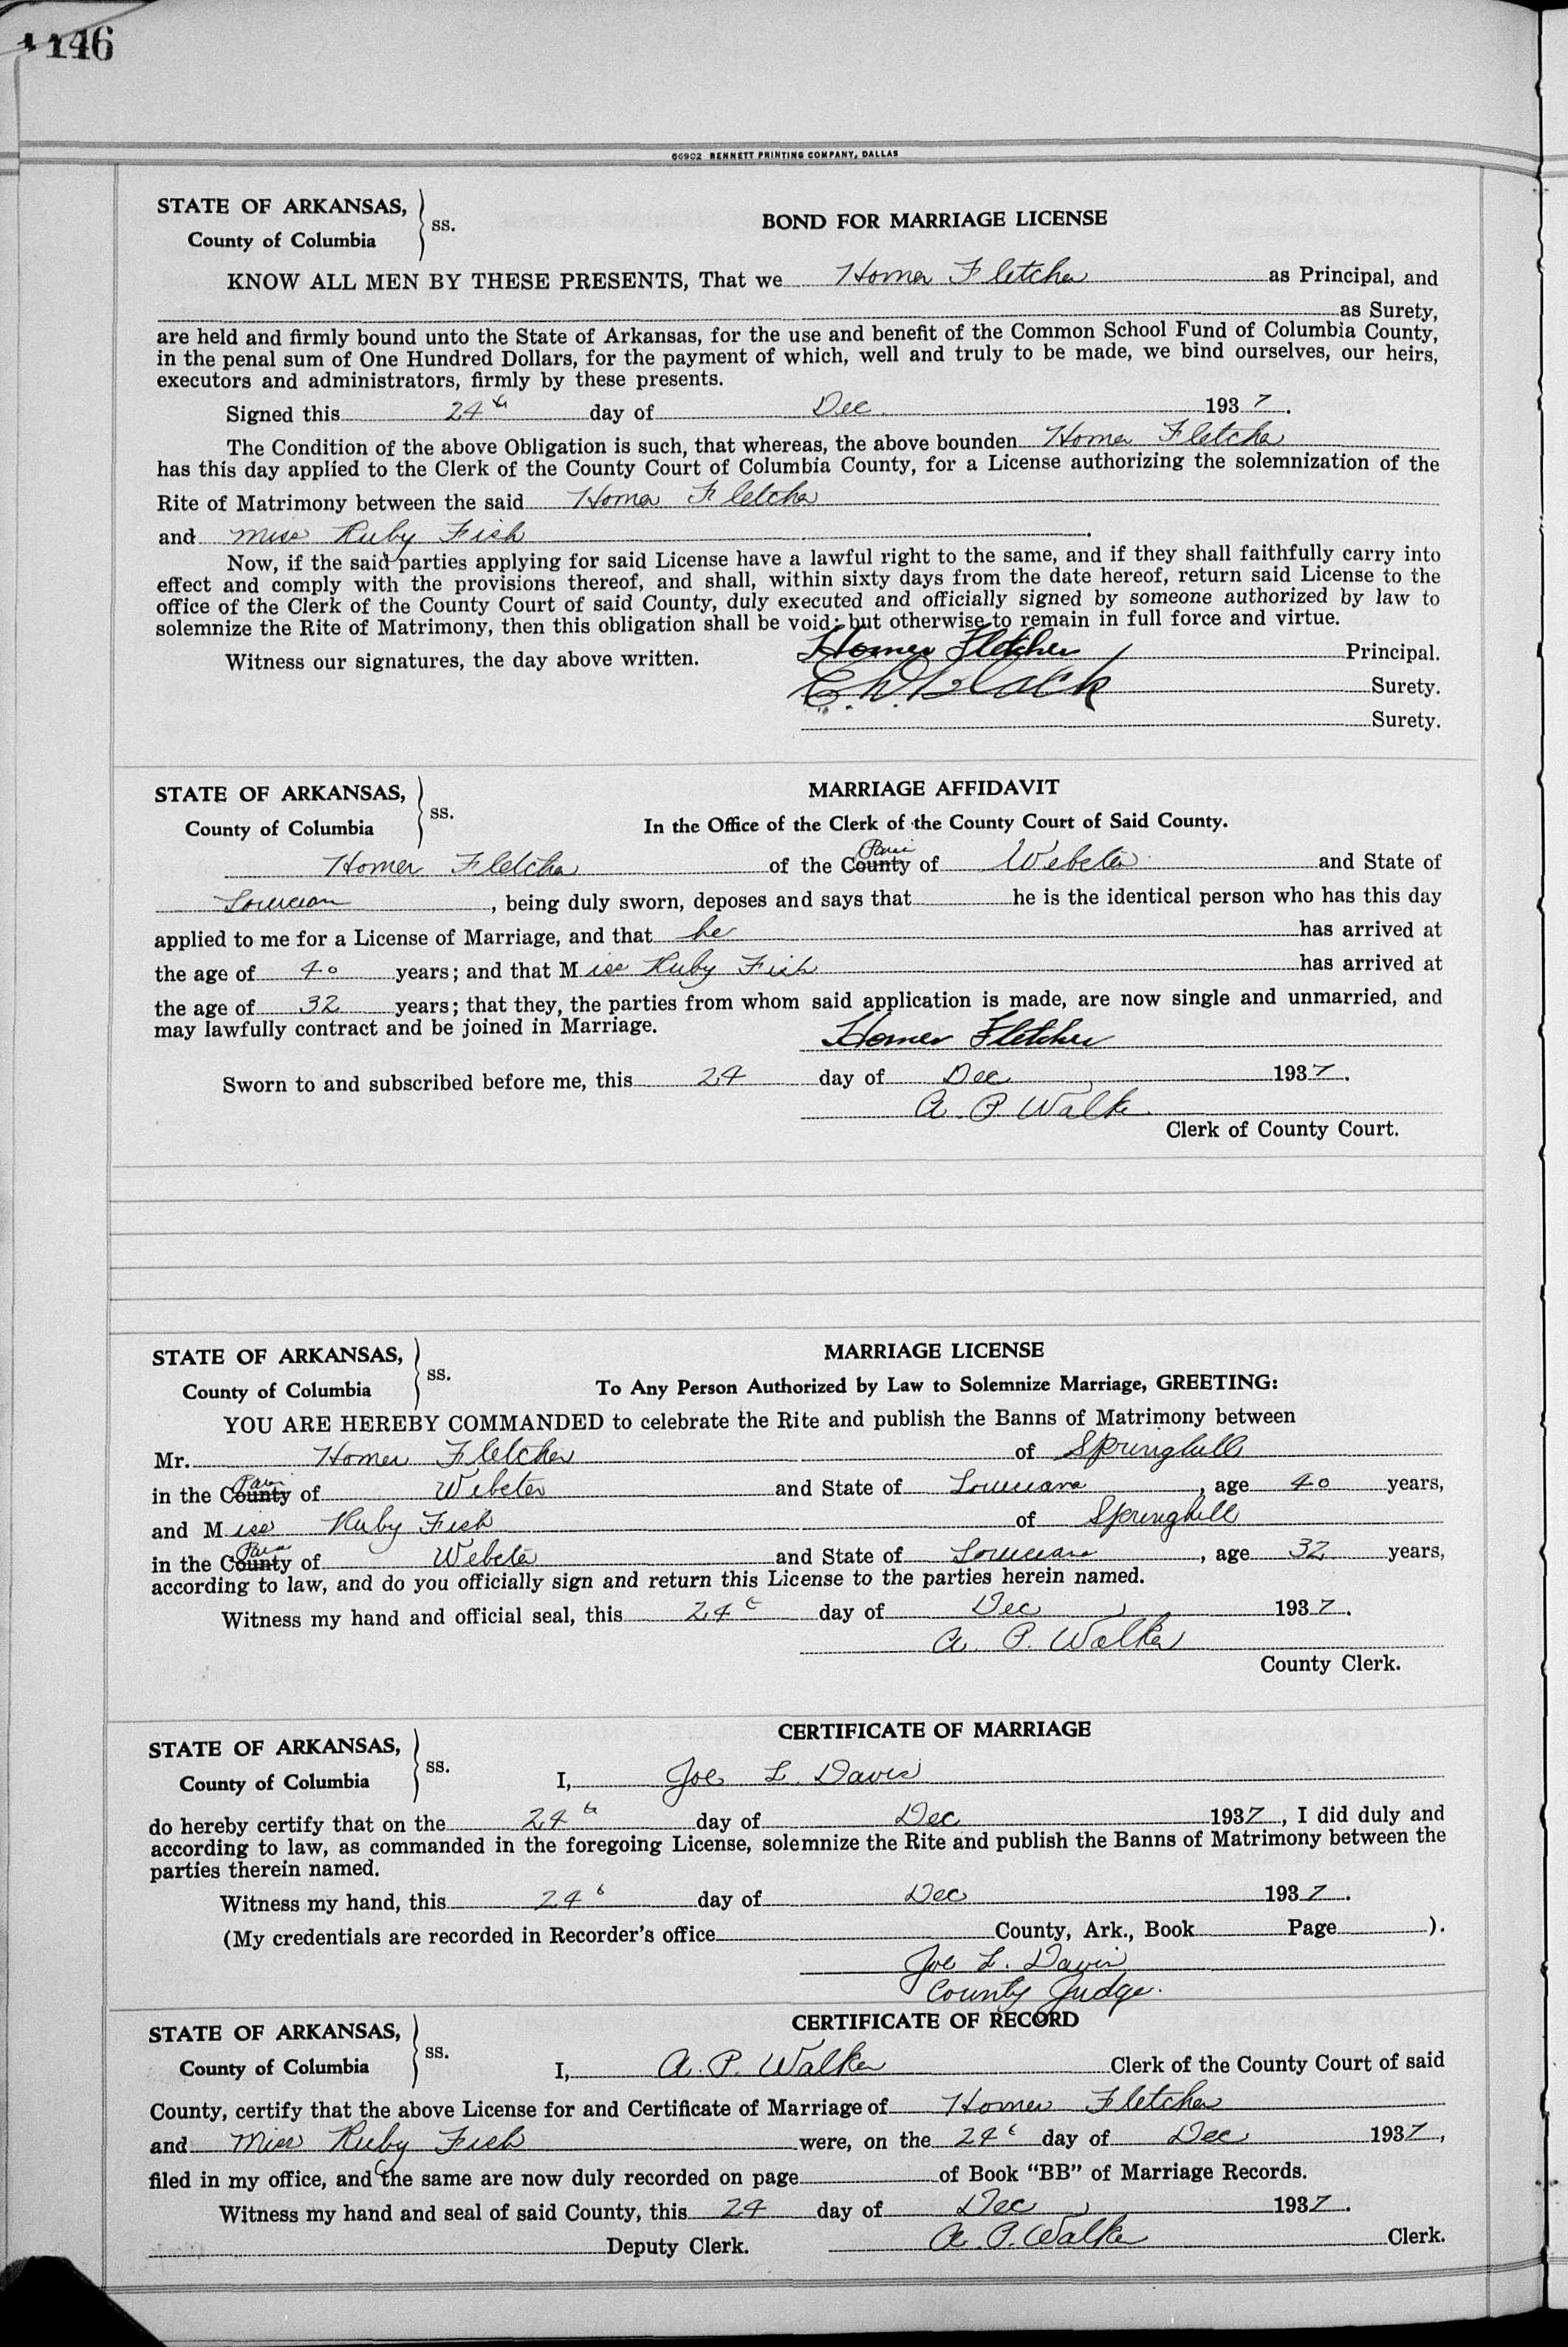 146
66902 BENNETT PRINTING COMPANY, DALLAS
STATE OF ARKANSAS,
County of Columbia
ss.
BOND FOR MARRIAGE LICENSE
KNOW ALL MEN BY THESE PRESENTS, That we Homer Fletcher as Principal, and
as Surety,
are held and firmly bound unto the State of Arkansas, for the use and benefit of the Common School Fund of Columbia County,
in the penal sum of One Hundred Dollars, for the payment of which, well and truly to be made, we bind ourselves, our heirs,
executors and administrators, firmly by these presents.
Signed this 24th day of Dec 1937.
The Condition of the above Obligation is such, that whereas, the above bounden Homer Fletcher
has this day applied to the Clerk of the County Court of Columbia County, for a License authorizing the solemnization of the
Rite of Matrimony between the said Homer Fletcher
and Miss Ruby Fish.
Now, if the said parties applying for said License have a lawful right to the same, and if they shall faithfully carry into
effect and comply with the provisions thereof, and shall, within sixty days from the date hereof, return said License to the
office of the Clerk of the County Court of said County, duly executed and officially signed by someone authorized by law to
solemnize the Rite of Matrimony, then this obligation shall be void; but otherwise to remain in full force and virtue.
Witness our signatures, the day above written. Homer Fletcher Principal.
Black Surety.
Surety.
STATE OF ARKANSAS,
County of Columbia
ss.
MARRIAGE AFFIDAVIT
In the Office of the Clerk of the County Court of Said County.
Homer Fletcher of the County Paris of Webster and State of
Louisiana, being duly sworn, deposes and says that he is the identical person who has this day
applied to me for a License of Marriage, and that he has arrived at
the age of 40 years; and that Miss Ruby Fish has arrived at
the age of 32 years; that they, the parties from whom said application is made, are now single and unmarried, and
may lawfully contract and be joined in Marriage.
Homer Fletcher
Sworn to and subscribed before me, this 24 day of Dec, 1937.
A. P. Walker
Clerk of County Court.
STATE OF ARKANSAS,
County of Columbia
ss.
MARRIAGE LICENSE
To Any Person Authorized by Law to Solemnize Marriage, GREETING:
YOU ARE HEREBY COMMANDED to celebrate the Rite and publish the Banns of Matrimony between
Mr. Homer Fletcher of Springhill
in the County Paris of Webster and State of Louisiana, age 40 years,
and Miss Ruby Fish of Springhill
in the County Paris of Webster and State of Louisiana, age 32 years,
according to law, and do you officially sign and return this License to the parties herein named.
Witness my hand and official seal, this 24th day of Dec, 1937.
A. P. Walker
County Clerk.
STATE OF ARKANSAS,
County of Columbia
ss.
CERTIFICATE OF MARRIAGE
I, Joe L. Davis
do hereby certify that on the 24th day of Dec 1937, I did duly and
according to law, as commanded in the foregoing License, solemnize the Rite and publish the Banns of Matrimony between the
parties therein named.
Witness my hand, this 24th day of Dec 1937.
(My credentials are recorded in Recorder's office County, Ark., Book Page ).
Joe L. Davis
County Judge.
STATE OF ARKANSAS,
County of Columbia
ss.
CERTIFICATE OF RECORD
I, A. P. Walker Clerk of the County Court of said
County, certify that the above License for and Certificate of Marriage of Homer Fletcher
and Miss Ruby Fish were, on the 24th day of Dec 1937,
filed in my office, and the same are now duly recorded on page of Book "BB" of Marriage Records.
Witness my hand and seal of said County, this 24 day of Dec, 1937.
Deputy Clerk. A. P. Walker Clerk.